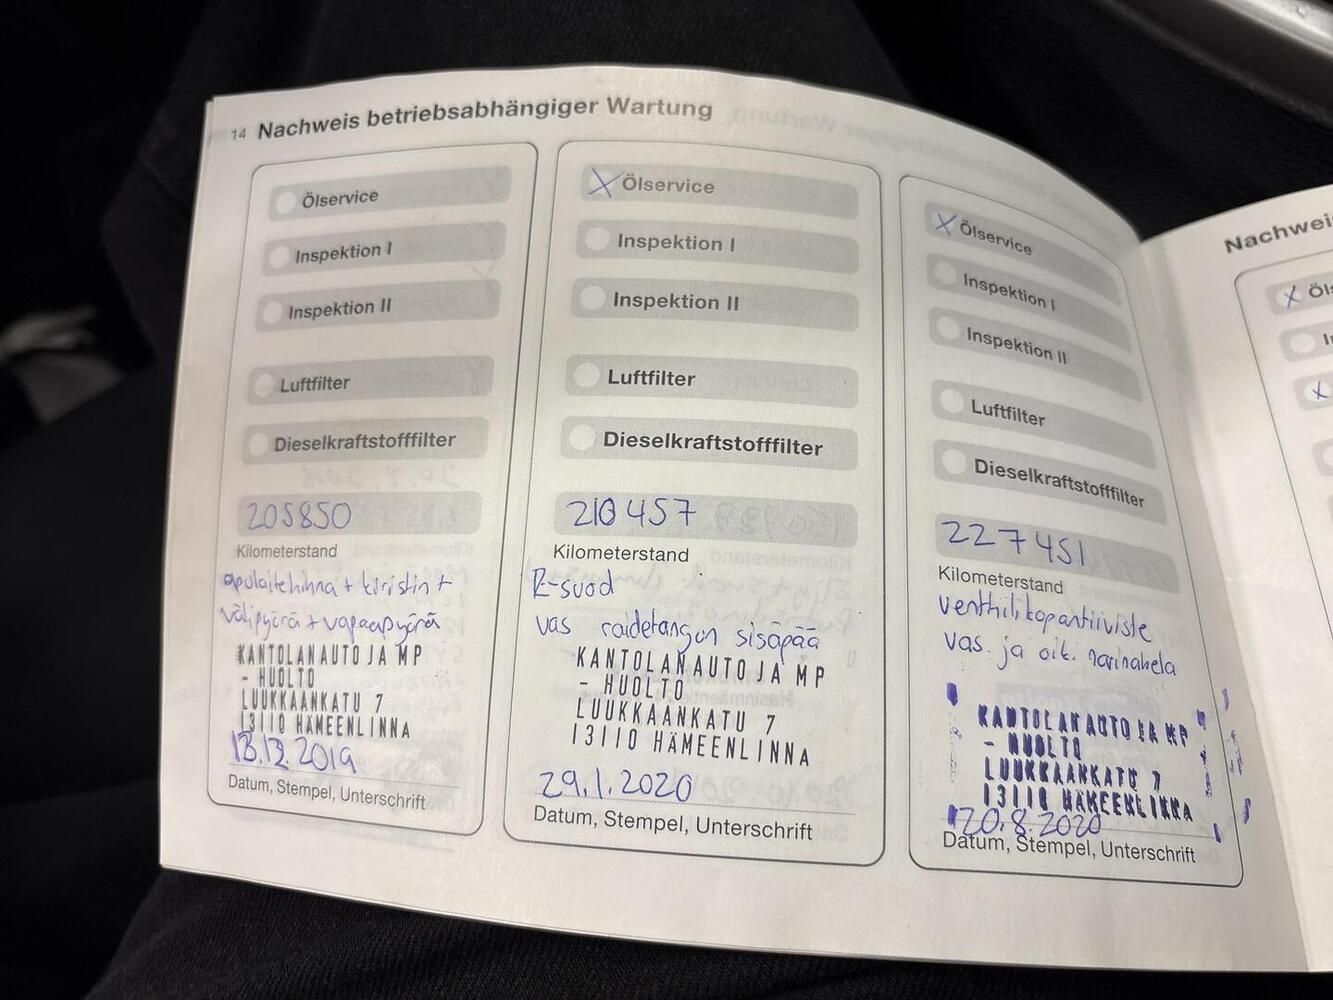 14 Nachweis betriebsabhängiger Wartung
Ölservice
Inspektion I
Inspektion II
Luftfilter
Dieselkraftstofffilter
205850
Kilometerstand
apulaitehihna + kiristin +
välipyörä + vapaapyörä
KANTOLAN AUTO JA MP
- HUOLTO
LUUKKAANKATU 7
13110 HÄMEENLINNA
13.12.2019
Datum, Stempel, Unterschrift
X Ölservice
Inspektion I
Inspektion II
Luftfilter
Dieselkraftstofffilter
210457
Kilometerstand
R-suod
vas raidetangon sisäpää
KANTOLAN AUTO JA MP
- HUOLTO
LUUKKAANKATU 7
13110 HÄMEENLINNA
29.1.2020
Datum, Stempel, Unterschrift
X Ölservice
Inspektion I
Inspektion II
Luftfilter
Dieselkraftstofffilter
227451
Kilometerstand
venttiilikopantiiviste
vas. ja oik. navinakela
KANTOLAN AUTO JA MP
- HUOLTO
LUUKKAANKATU 7
13110 HÄMEENLINNA
20.8.2020
Datum, Stempel, Unterschrift
Nachwei
X Öls
X